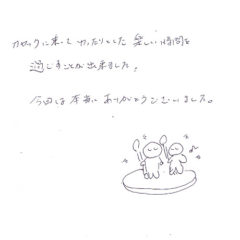 カヤックに乗ってゆったりとした楽しい時間を
過ごすことが出来ました！
今回は本当にありがとうございました。